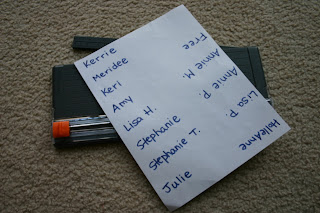 Kerrie
Meridee
Keri
Amy
Lisa H.
Stephanie
Stephanie T.
Julie
HollieAnne
Lisa P.
Annie P.
Annie M.
Free